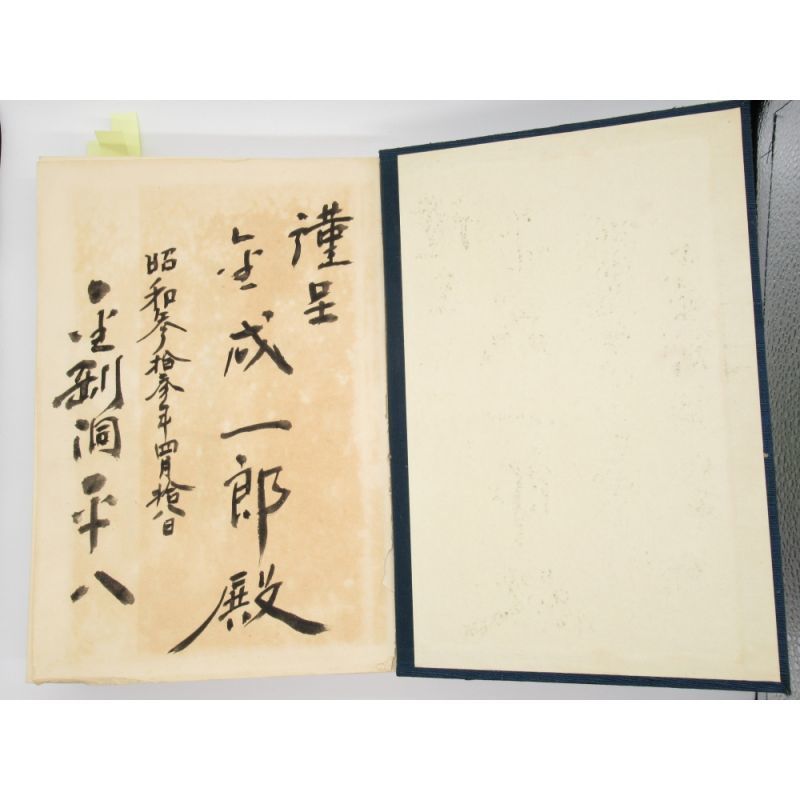 謹呈
金成一郎殿
昭和参拾参年四月拾八日
金剛洞平八